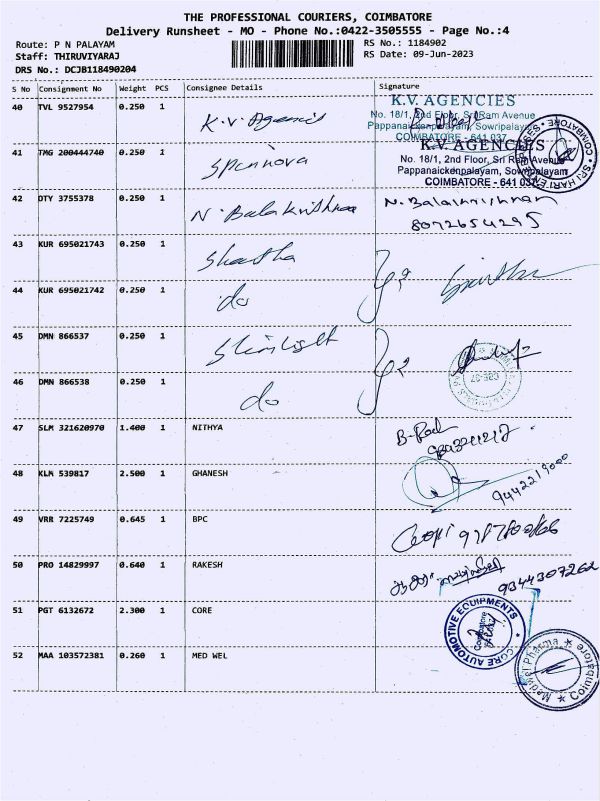 THE PROFESSIONAL COURIERS, COIMBATORE
Delivery Runsheet - MO - Phone No.:0422-3505555 - Page No.:4
Route: P N PALAYAM
RS No.: 1184902
Staff: THIRUVIYARAJ
RS Date: 09-Jun-2023
DRS No.: DCJB118490204
S No Consignment No Weight PCS Consignee Details Signature
40 TVL 9527954 0.250 1 K.V. Agencis
K.V. AGENCIES
No. 18/1, 2nd Floor, Sri Ram Avenue
Pappanaickenpalayam, Sowripalayam
COIMBATORE - 641 037
41 TMG 200444740 0.250 1 Spinnova
K.V. AGENCIES
No. 18/1, 2nd Floor, Sri Ram Avenue
Pappanaickenpalayam, Sowripalayam
COIMBATORE - 641 037
COIMBATORE
SRI HARI
42 DTY 3755378 0.250 1 N. Balakrishnan N. Balakrishnan
8072654295
43 KUR 695021743 0.250 1
44 KUR 695021742 0.250 1 do
45 DMN 866537 0.250 1
46 DMN 866538 0.250 1 do
CBE-37
47 SLM 321620970 1.400 1 NITHYA
48 KLM 539817 2.500 1 GHANESH 9442219000
49 VRR 7225749 0.645 1 BPC
50 PRO 14829997 0.640 1 RAKESH 9344307262
51 PGT 6132672 2.300 1 CORE
CORE AUTOMOTIVE EQUIPMENTS
Coimbatore
52 MAA 103572381 0.260 1 MED WEL
Medwel Pharma
Coimbatore